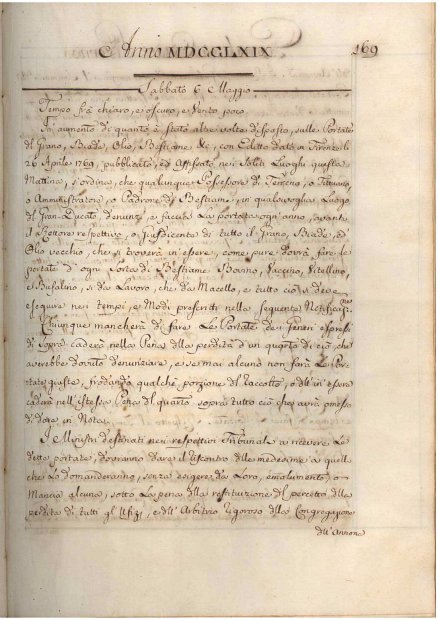 Anno MDCCLXIX 169
Sabbato 6 Maggio
Tempo frà chiaro, e oscuro, e Vento poco
In aumento di quanto è stato altre volte disposto, sulle Portate
del Grano, Biade, Olio, Bestiame &c, con Editto dato in Firenze li
26 Aprile 1769, pubblicato, ed Affissato nei Soliti Luoghi questa
Mattina, si ordina, che qualunque Possessore di Terreno, o Fittuario,
o Amministratore, o Padrone di Bestiame, in qualsivoglia Luogo
del Gran-Ducato, denunzj, e faccia La portata ogni anno, avanti
il Rettore respettivo, o Giusdicente di tutto il Grano, Biade, ed
Olio vecchio, che si troverà in essere, come pure dovrà fare le
portate d'ogni Sorta di Bestiame Bovino, Vaccino, Vitellino,
e Bufalino, si da Lavoro, che da Macello, e tutto ciò si deve
eseguire nei tempi, e Modi prescritti nella seguente Notificaz.ne
Chiunque mancherà di fare Le Portate dei Generi espressi
di Sopra caderà nella Pena della perdita d'un quarto di ciò, che
averebbe dovuto denunziare, e se mai alcuno non farà Le Por
tate giuste, frodando qualche porzione del Raccolto, o dell'in essere
caderà nell'istessa Pena del quarto sopra tutto ciò che avrà omesso
di dare in Nota.
I Ministri destinati nei respettivi Tribunali a ricevere Le
dette portate, dovranno dare il riscontro delle medesime a quelli
che Lo domanderanno, senza esigere da Loro, emolumento, o
Mancia alcuna, sotto La pena della restituzione del percetto, della
perdita di tutti gl'Ufizj, e dell'Arbitrio rigoroso della Congregazione
dell'Annona